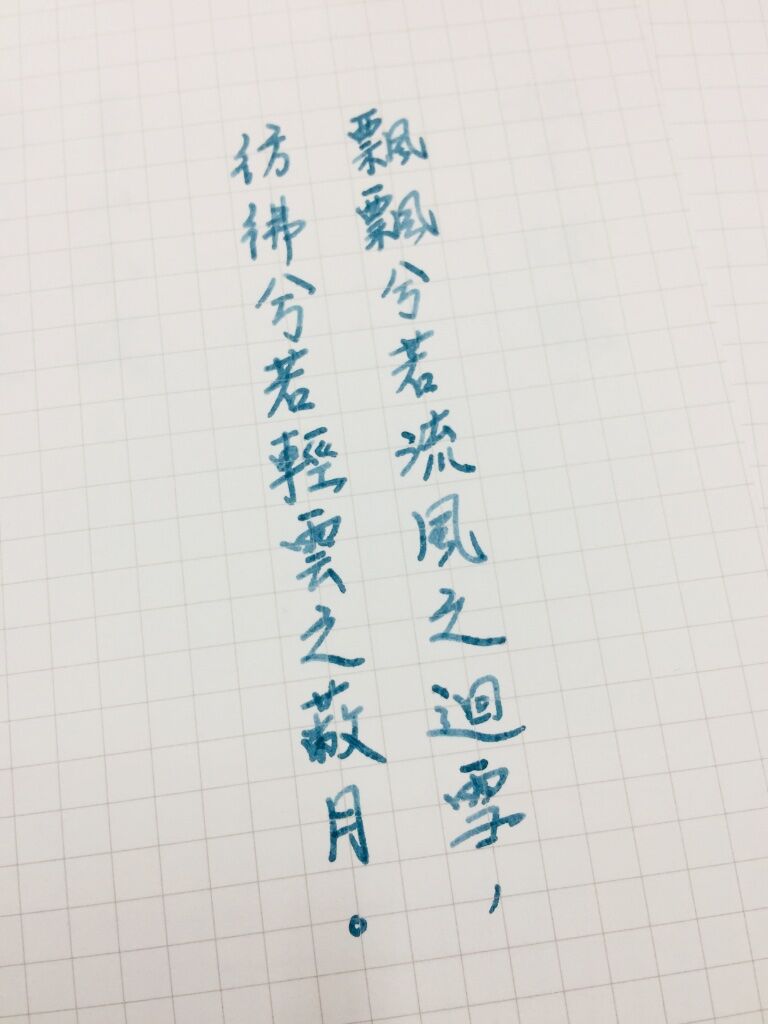 飄飄兮若流風之迴雪，
彷彿兮若輕雲之蔽月。